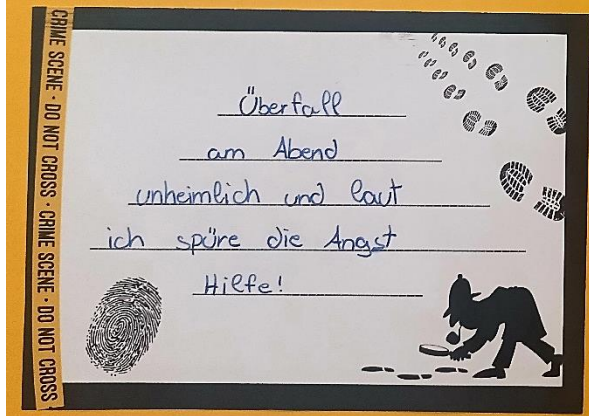 CRIME SCENE · DO NOT CROSS · CRIME SCENE · DO NOT CROSS
Überfall
am Abend
unheimlich und laut
ich spüre die Angst
Hilfe!